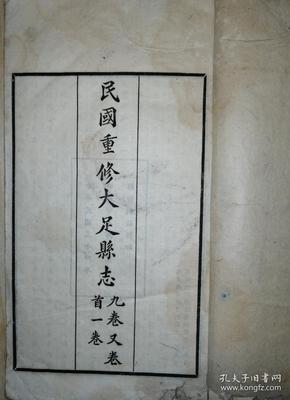 民國重修大足縣志
九卷又卷
首一卷
孔夫子旧书网